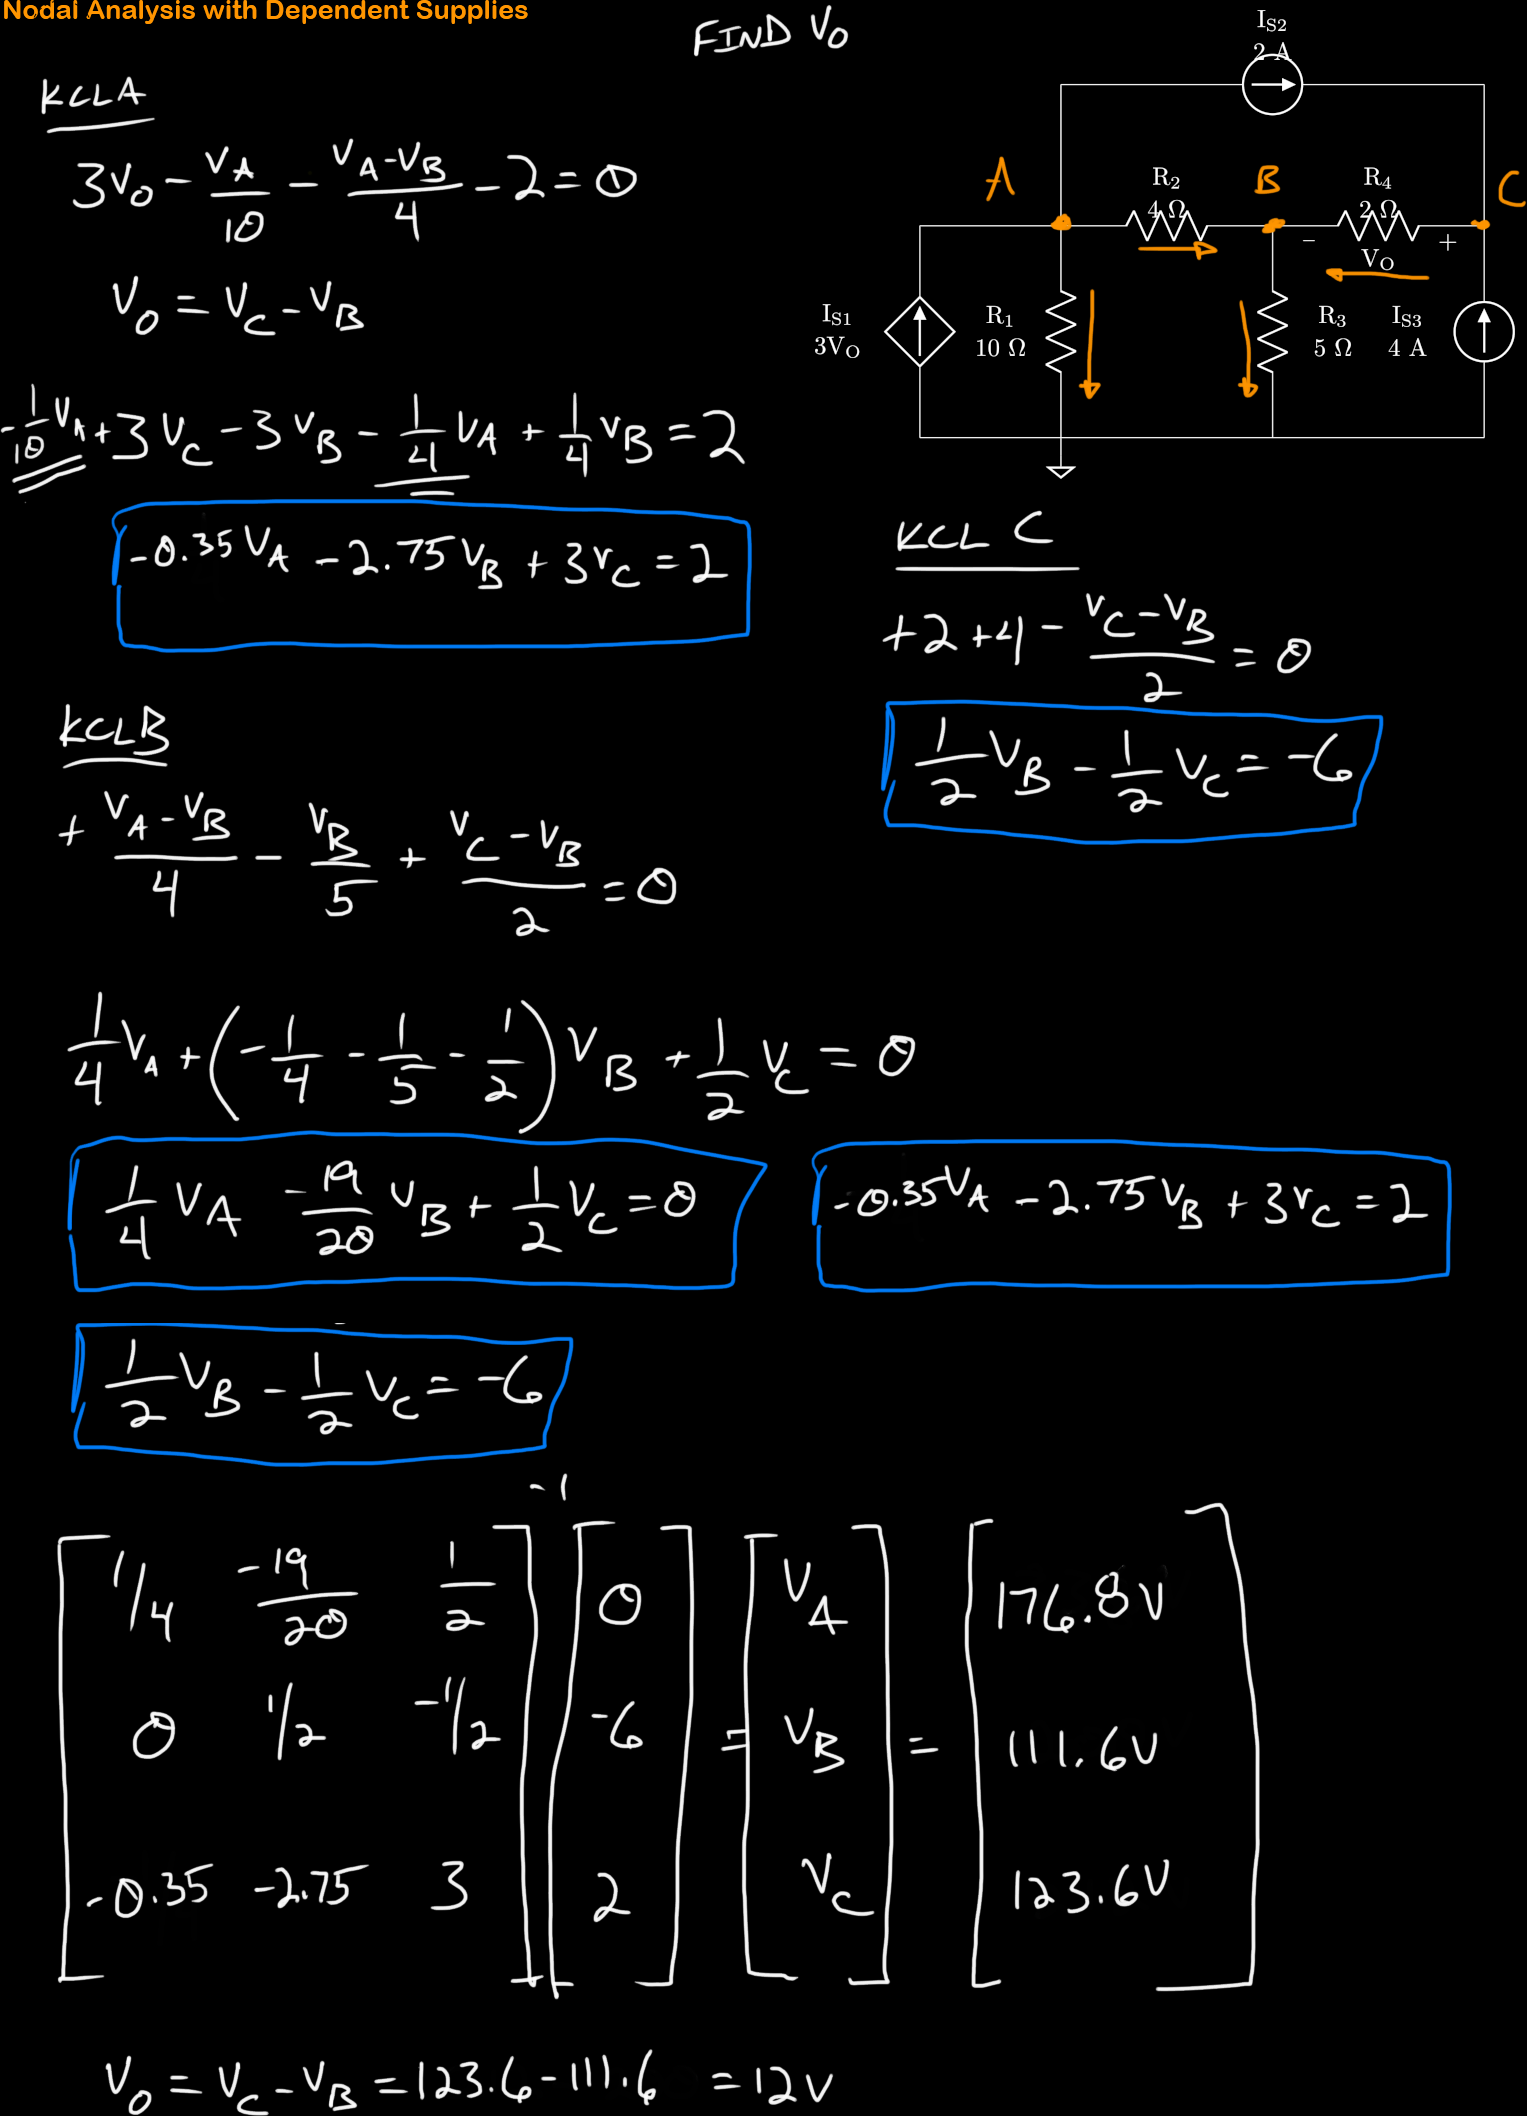 Nodal Analysis with Dependent Supplies
FIND V_O
I_S2
2 A
A
R_2
4 Ω
B
R_4
2 Ω
C
−
+
V_O
I_S1
3V_O
R_1
10 Ω
R_3
5 Ω
I_S3
4 A
KCL A
3V_O - V_A/10 - (V_A-V_B)/4 - 2 = 0
V_O = V_C - V_B
-1/10 V_A + 3V_C - 3V_B - 1/4 V_A + 1/4 V_B = 2
-0.35V_A - 2.75V_B + 3V_C = 2
KCL C
+2 +4 - (V_C-V_B)/2 = 0
1/2 V_B - 1/2 V_C = -6
KCL B
+ (V_A-V_B)/4 - V_B/5 + (V_C-V_B)/2 = 0
1/4 V_A + (-1/4 - 1/5 - 1/2) V_B + 1/2 V_C = 0
1/4 V_A -19/20 V_B + 1/2 V_C = 0
-0.35V_A - 2.75V_B + 3V_C = 2
1/2 V_B - 1/2 V_C = -6
-1
1/4 -19/20 1/2 0 V_A 176.8V
0 1/2 -1/2 -6 = V_B = 111.6V
-0.35 -2.75 3 2 V_C 123.6V
V_O = V_C - V_B = 123.6 - 111.6 = 12V